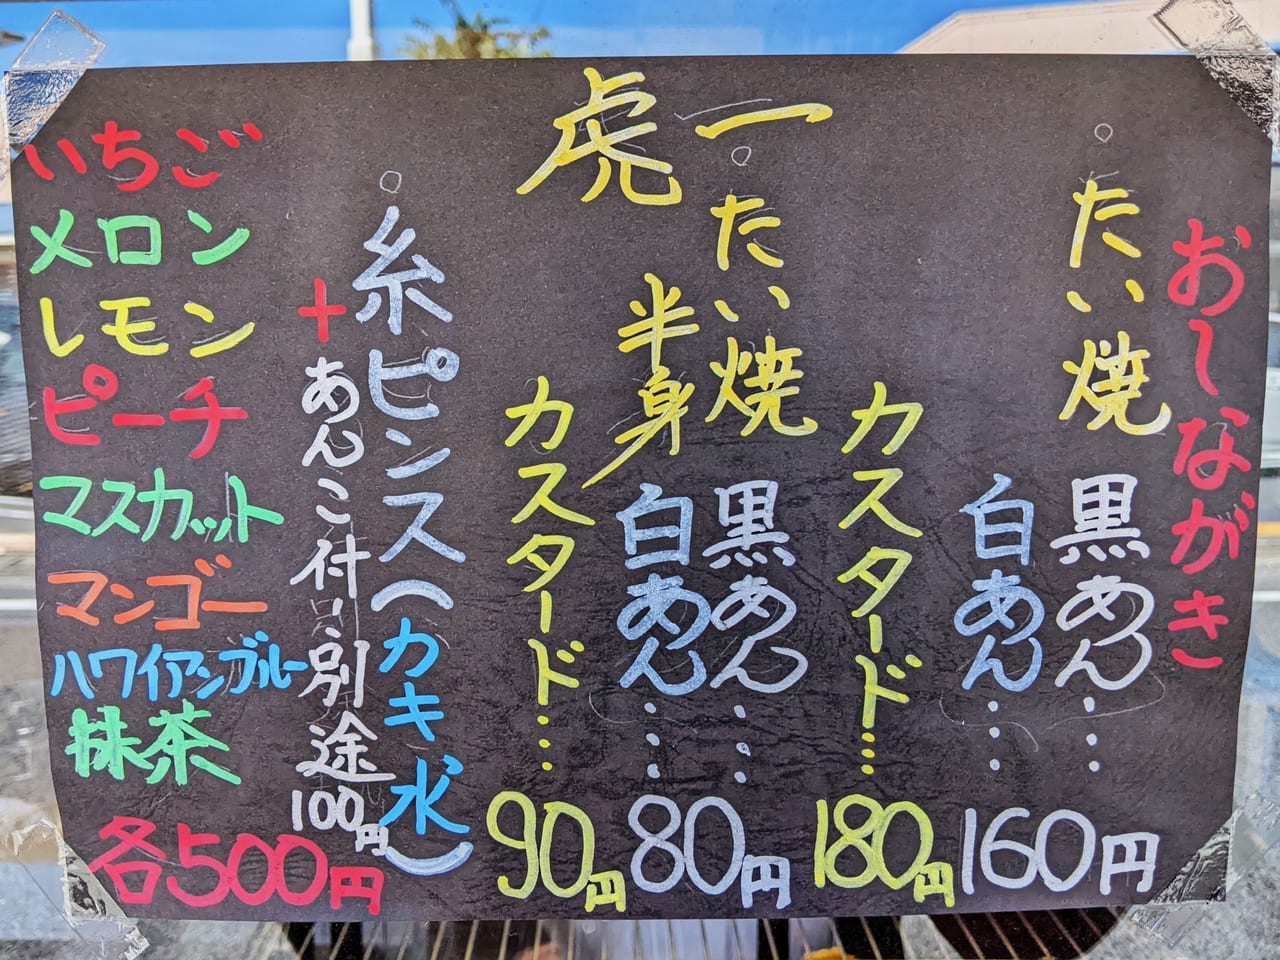 虎一
おしながき
○たい焼
黒あん……
白あん……160円
カスタード……180円
○たい焼
半身
黒あん……
白あん……80円
カスタード……90円
○糸ピンス(カキ氷)
+あんこ付別途100円
いちご
メロン
レモン
ピーチ
マスカット
マンゴー
ハワイアンブルー
抹茶
各500円